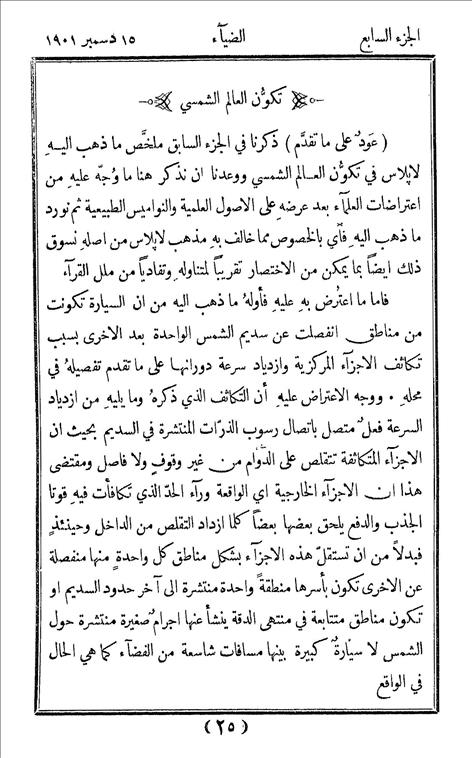 الجزء السابع الضيآء ١٥ دسمبر ١٩٠١
تكوُّن العالم الشمسي
( عَودٌ على ما تقدَّم ) ذكرنا في الجزء السابق ملخَّص ما ذهب اليــهِ
لاپلاس في تكوُّن العــالم الشمسي ووعدنا ان نذكر هنا ما وُجّه عليهِ من
اعتراضات العلمآء بعد عرضهِ على الاصول العلمية والنواميس الطبيعية ثم نورد
ما ذهب اليهِ فآي بالخصوص مما خالف بهِ مذهب لاپلاس من اصلهِ نسوق
ذلك ايضاً بما يمكن من الاختصار تقريباً لمتناولهِ وتفادياً من ملل القرآء
فاما ما اعتُرض بهِ عليهِ فأولهُ ما ذهب اليه من ان السيارة تكونت
من مناطق انفصلت عن سديم الشمس الواحدة بعد الاخرى بسبب
تكاثف الاجزآء المركزية وازدياد سرعة دورانهــا على ما تقدم تفصيلهُ في
محلهِ . ووجه الاعتراض عليهِ أن التكاثف الذي ذكرهُ وما يليهِ من ازدياد
السرعة فعلٌ متصل باتصال رسوب الذرّات المنتشرة في السديم بحيث ان
الاجزآء المتكاثفة تتقلص على الدَّوام من غير وقوفٍ ولا فاصل ومقتضى
هذا ان الاجزآء الخارجية اي الواقعة ورآء الحدّ الذي تكافأت فيهِ قوتا
الجذب والدفع يلحق بعضها بعضاً كلما ازداد التقلص من الداخل وحينئذٍ
فبدلاً من ان تستقلّ هذه الاجزآء بشكل مناطق كل واحدةٍ منها منفصلة
عن الاخرى تكون بأسرها منطقةً واحدة منتشرة الى آخر حدود السديم او
تكون مناطق متتابعة في منتهى الدقة ينشأ عنها اجرامٌ صغيرة منتشرة حول
الشمس لا سيّارةٌ كبيرة بينها مسافات شاسعة من الفضآء كما هي الحال
في الواقع
(٢٥)